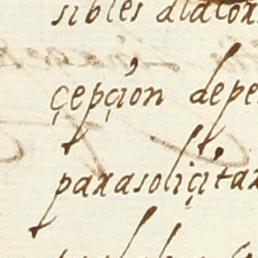 sibles ala con
çepçion de pe
para soliçitar